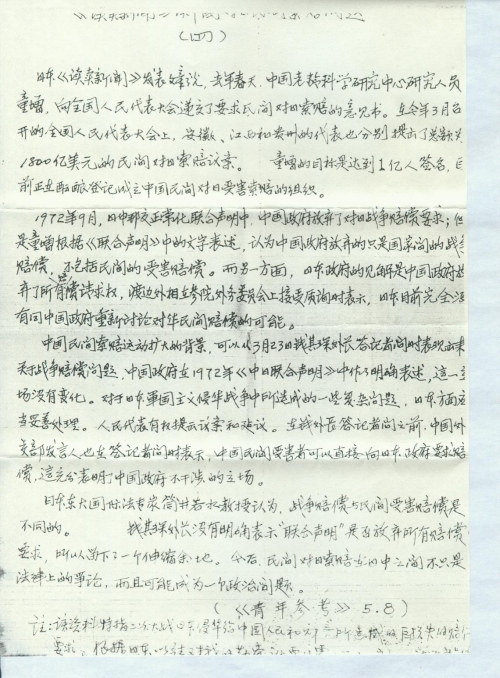 《读卖新闻》
(四)
日本《读卖新闻》发表文章说，去年春天，中国老龄科学研究中心研究人员
童增，向全国人民代表大会递交了要求民间对日索赔的意见书。在今年3月召
开的全国人民代表大会上，安徽、江西和贵州的代表也分别提出了总额为
1800亿美元的民间对日索赔议案。 童增的目标是达到1亿人签名，目
前正在酝酿登记成立中国民间对日受害索赔的组织。
1972年9月，日中邦交正常化联合声明中，中国政府放弃了对日战争赔偿要求；但
是童增根据《联合声明》中的文字表述，认为中国政府放弃的只是国家间的战争
赔偿，不包括民间的受害赔偿。而另一方面，日本政府的见解是中国政府放
弃了所有赔偿请求权，渡边外相在参院外务委员会上接受质询时表示，日本目前完全没
有同中国政府重新讨论对华民间赔偿的可能。
中国民间索赔运动扩大的背景，可以从3月23日钱其琛外长答记者问时表现出来
关于战争赔偿问题，中国政府在1972年《中日联合声明》中作了明确表述，这一立
场没有变化。对于日本军国主义侵华战争中所造成的一些复杂问题，日本方面应
当妥善处理。人民代表有权提出议案和建议。在钱外长答记者问之前，中国外
交部发言人也在答记者问时表示，中国民间受害者可以直接向日本政府要求赔
偿，这充分表明了中国政府不干涉的立场。
日本东大国际法专家筒井若水教授认为，战争赔偿与民间受害赔偿是
不同的。 钱其琛外长没有明确表示“联合声明”是否放弃所有赔偿
要求，所以留下了一个伸缩余地。今后，民间对日索赔在日中之间不只是
法律上的争论，而且可能成为一个政治问题。
(《青年参考》5.8)
注：该资料特指二次大战日本侵华给中国人民和
要求。根据日本